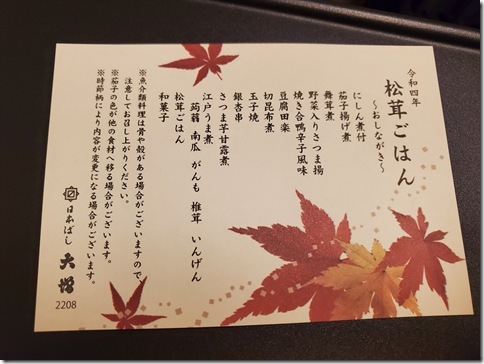 令和四年
松茸ごはん
～おしながき～
にしん煮付
茄子揚げ煮
舞茸煮
野菜入りさつま揚
焼き合鴨辛子風味
豆腐田楽
切昆布煮
玉子焼
銀杏串
さつま芋甘露煮
江戸うま煮
蒟蒻 南瓜 がんも 椎茸 いんげん
松茸ごはん
和菓子
※魚介類料理は骨や殻がある場合がございますので
注意してお召し上がりください。
※茄子の色が他の食材へ移る場合がございます。
※時節柄により内容が変更になる場合がございます。
日本ばし 大増
2208